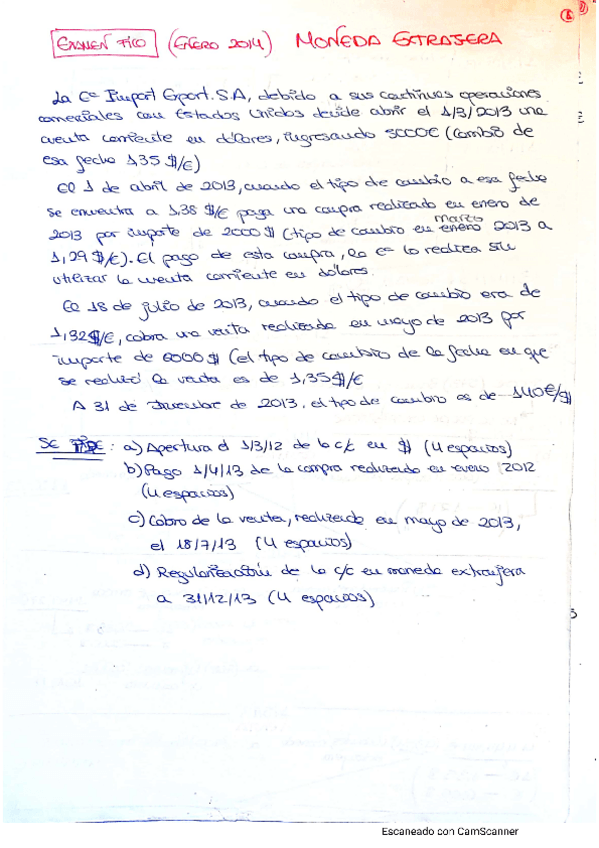 EXAMEN TICO (ENERO 2014) MONEDA EXTRAJERA
La Cª Import Export. S.A, debido a sus continuas operaciones
comerciales con Estados Unidos decide abrir el 1/3/2013 una
cuenta corriente en dólares, ingresando 5000€ (Cambio de
esa fecha 1,35 $/€)
El 1 de abril de 2013, cuando el tipo de cambio a esa fecha
se encuentra a 1,38 $/€ paga una compra realizada en enero de
marzo
2013 por importe de 2000 $ (tipo de cambio en enero 2013 a
1,29 $/€). El pago de esta compra, la cª lo realiza sin
utilizar la cuenta corriente en dólares.
El 18 de julio de 2013, cuando el tipo de cambio era de
1,32 $/€, cobra una venta realizada en mayo de 2013 por
importe de 6000 $ (el tipo de cambio de la fecha en que
se realizó la venta es de 1,35 $/€
A 31 de Diciembre de 2013, el tipo de cambio es de 1'40€/$
SE PIDE: a) Apertura el 1/3/12 de la c/c en $ (4 espacios)
b) Pago 1/4/13 de la compra realizada en enero 2012
(4 espacios)
c) Cobro de la venta, realizada en mayo de 2013,
el 18/7/13 (4 espacios)
d) Regularización de la c/c en moneda extrajera
a 31/12/13 (4 espacios)
Escaneado con CamScanner